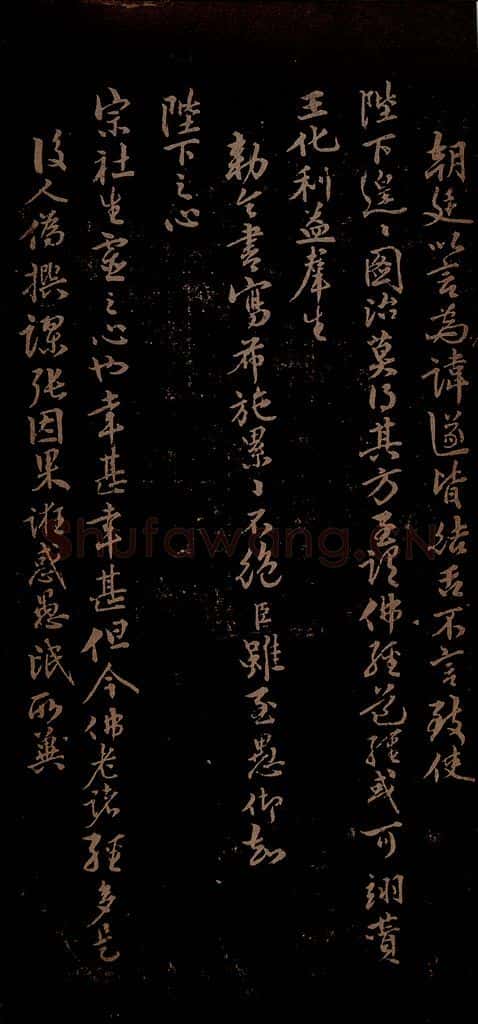 朝廷以言為諱遂皆結舌不言致使
陛下遑〻圖治莫得其方至謂佛經道經或可翊贊
王化利益羣生
勅令書寫布施累〻不絕臣雖至愚仰知
陛下之心
宗社生靈之心也幸甚幸甚但今佛老諸經多是
後人偽撰謬張因果淑惑愚氓所冀
Shufawang.CN